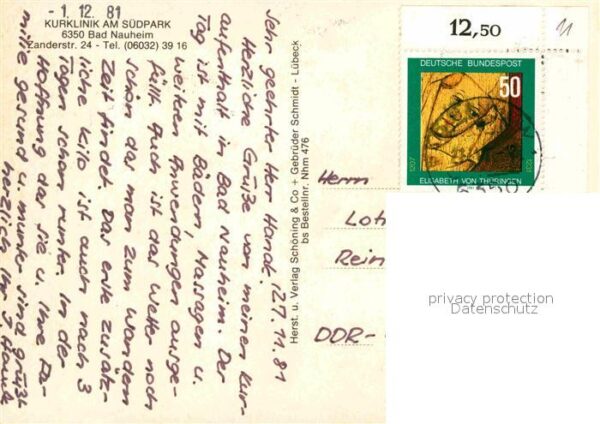 - 1. 12. 81
KURKLINIK AM SÜDPARK
6350 Bad Nauheim
Zanderstr. 24 - Tel. (06032) 39 16
Sehr geehrter Herr 127.11.81
Herzliche Grüße von meinem Kur-
aufenthalt in Bad Nauheim. Der
Tag ist mit Bädern, Massagen u.
weiteren Anwendungen ausge-
füllt. Auch ist das Wetter noch
schön das man zum Wandern
Zeit findet. Das erste zusätz-
liche Kilo ist auch nach 3
Tagen schon runter. In der
Hoffnung das sie u. ihre Fa-
milie gesund u. munter sind grüßt
herzlich Ihr
Herst. u. Verlag Schöning & Co + Gebrüder Schmidt - Lübeck
bs Bestellnr. Nhm 476
12,50
11
DEUTSCHE BUNDESPOST
50
1207
1231
ELISABETH VON THÜRINGEN
Herrn
Lot
Rein
DDR-
privacy protection
Datenschutz